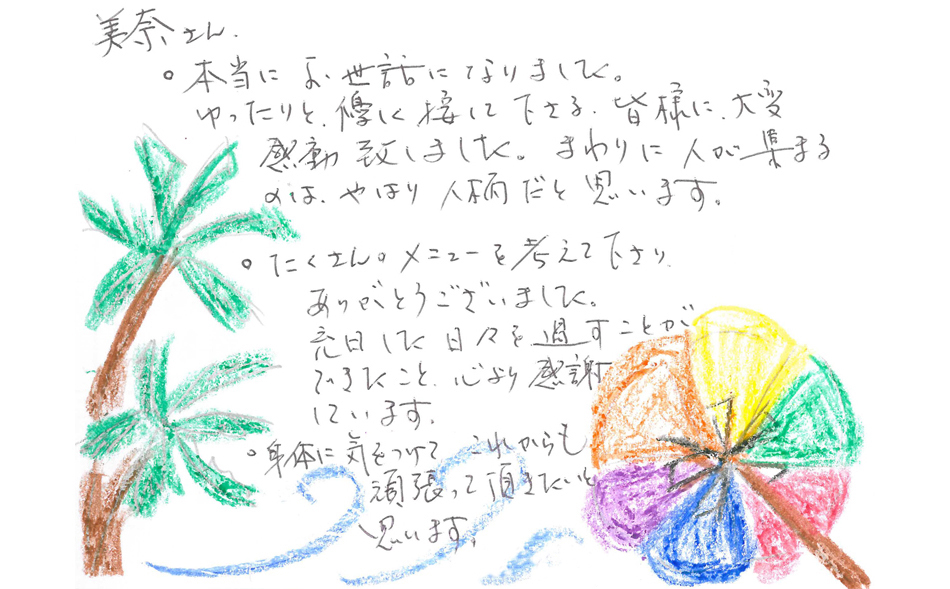 美奈さん.
○ 本当に お世話になりました。
ゆったりと、優しく接して下さる、皆様に、大変
感動致しました。まわりに人が集まる
のは、やはり人柄だと思います。
○ たくさんのメニューを考えて下さり、
ありがとうございました。
充日した日々を過すことが
できたこと、心より感謝
しています。
○ 身体に気をつけて これからも
頑張って頂きたいと
思います。